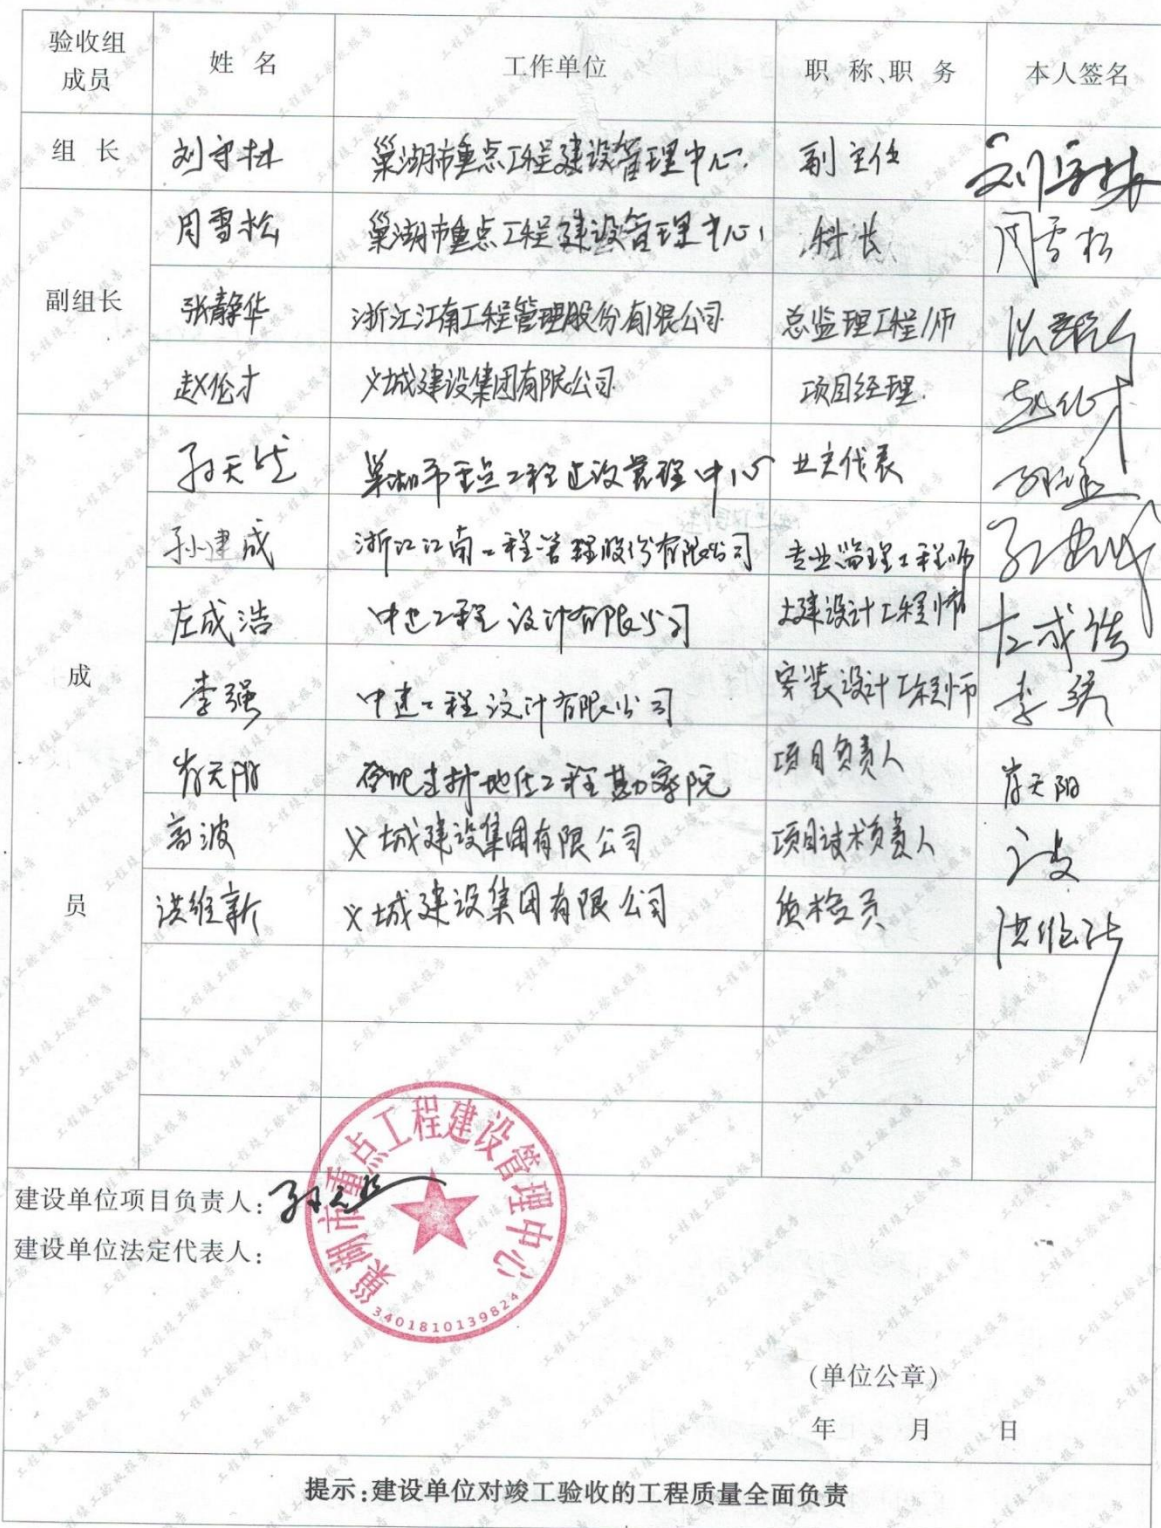 验收组成员 姓 名 工作单位 职 称、职 务 本人签名
组 长 刘守林 巢湖市重点工程建设管理中心. 副主任 刘守林
副组长 周雪松 巢湖市重点工程建设管理中心 科长 周雪松
张静华 浙江江南工程管理股份有限公司 总监理工程师
赵伦才 义城建设集团有限公司 项目经理. 赵伦才
成员 孙天然 巢湖市重点工程建设管理中心 业主代表
孙建成 浙江江南工程管理股份有限公司 专业监理工程师 孙建成
左成浩 中建工程设计有限公司 土建设计工程师 左成浩
李强 中建工程设计有限公司 安装设计工程师 李强
天阳 合肥建材地质工程勘察院 项目负责人 天阳
高波 义城建设集团有限公司 项目技术负责人
洪维新 义城建设集团有限公司 质检员 洪维新
建设单位项目负责人:
建设单位法定代表人:
巢湖市重点工程建设管理中心
3401810139824
(单位公章)
年 月 日
提示:建设单位对竣工验收的工程质量全面负责
工程竣工验收报告